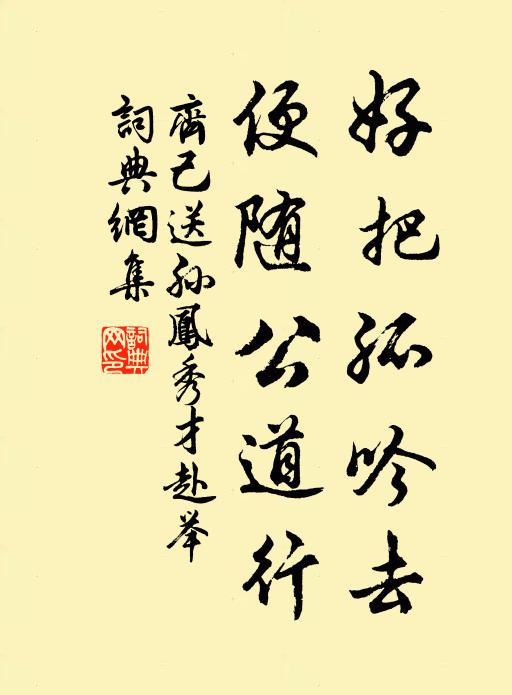 好把孤吟去
便随公道行
齊己送孙鳳秀才赴举
詞典網集
詞典网印